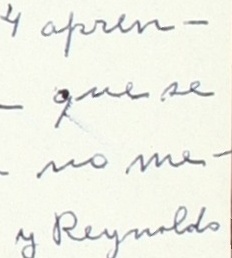 4 apren-
- que se
- no me-
y Reynolds